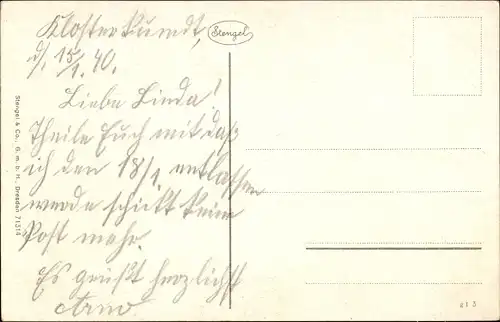 Klosterkumdt,
d/. 15/1. 40.
Stengel
Liebe Linda!
Theile Euch mit daß
ich den 18/1 entlassen
werde schikt keine
Post mehr.
Es grüßt herzlichst
Arno
Stengel & Co., G. m. b. H., Dresden 71314